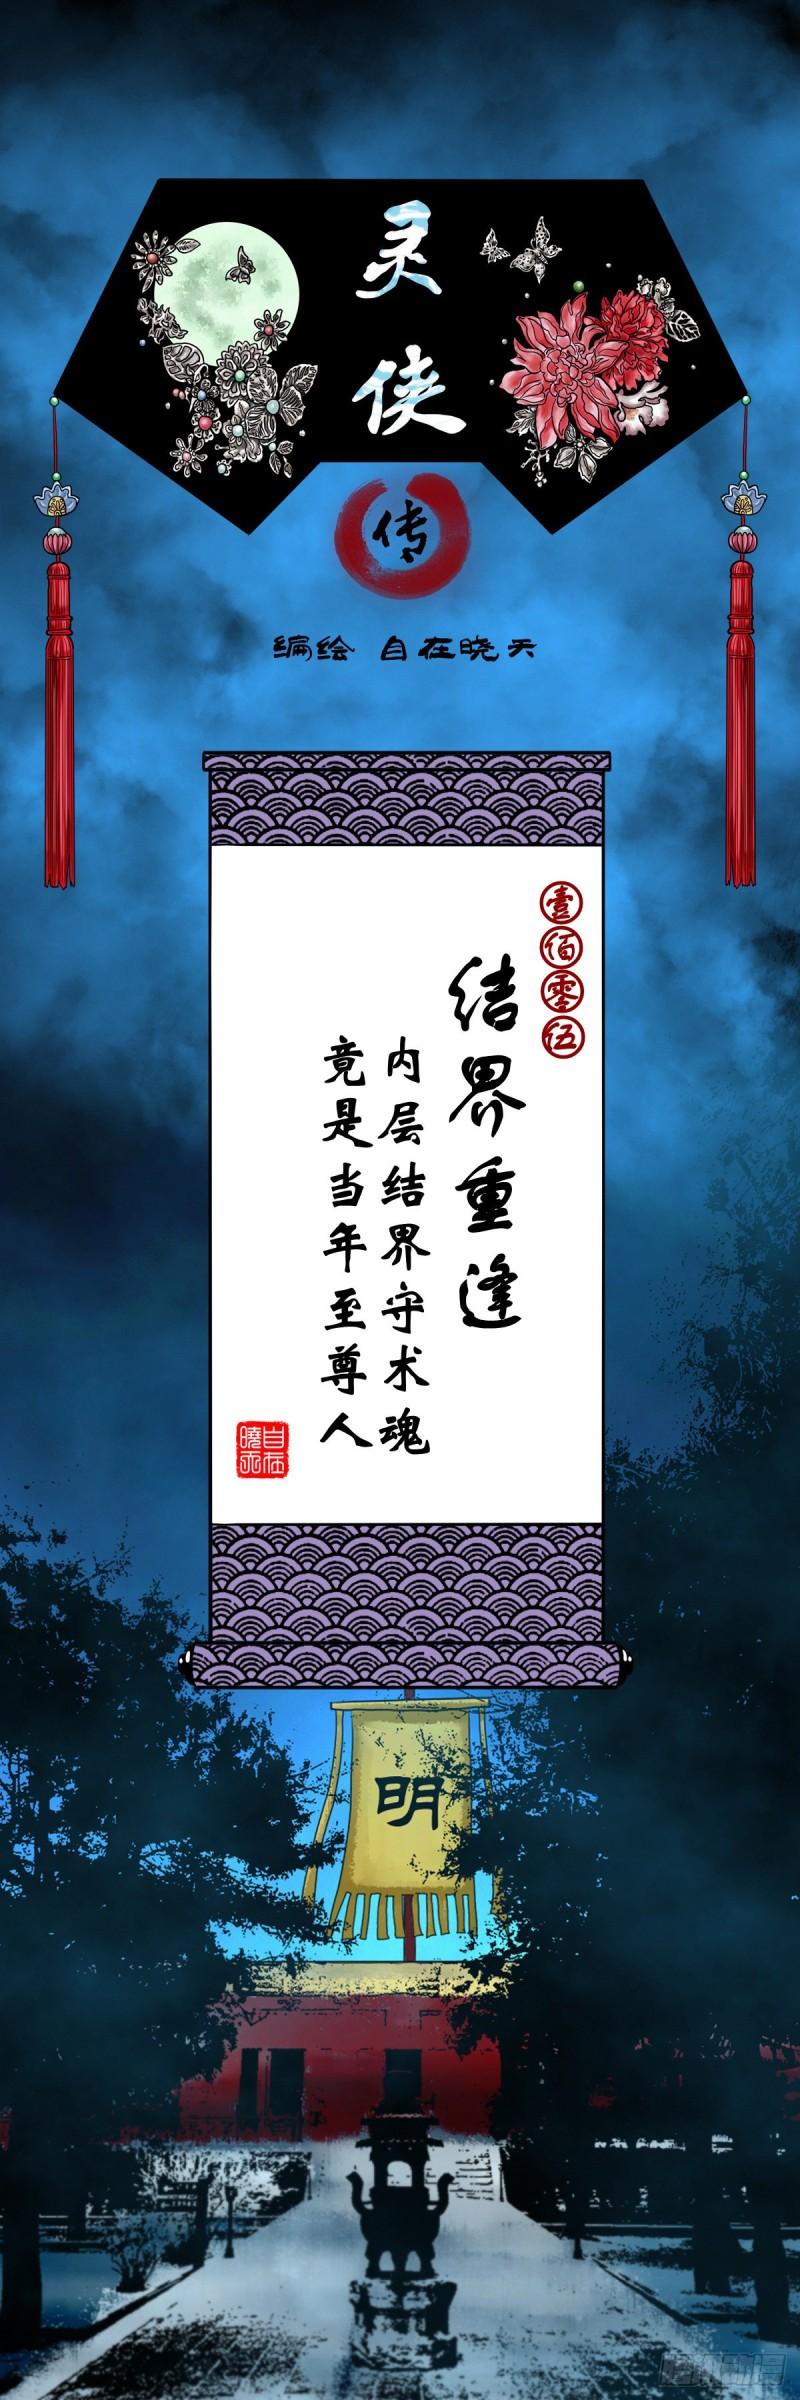 灵侠
传
编绘 自在晓天
壹佰零伍
结界重逢
内层结界守术魂
竟是当年至尊人
自在
曉天
明